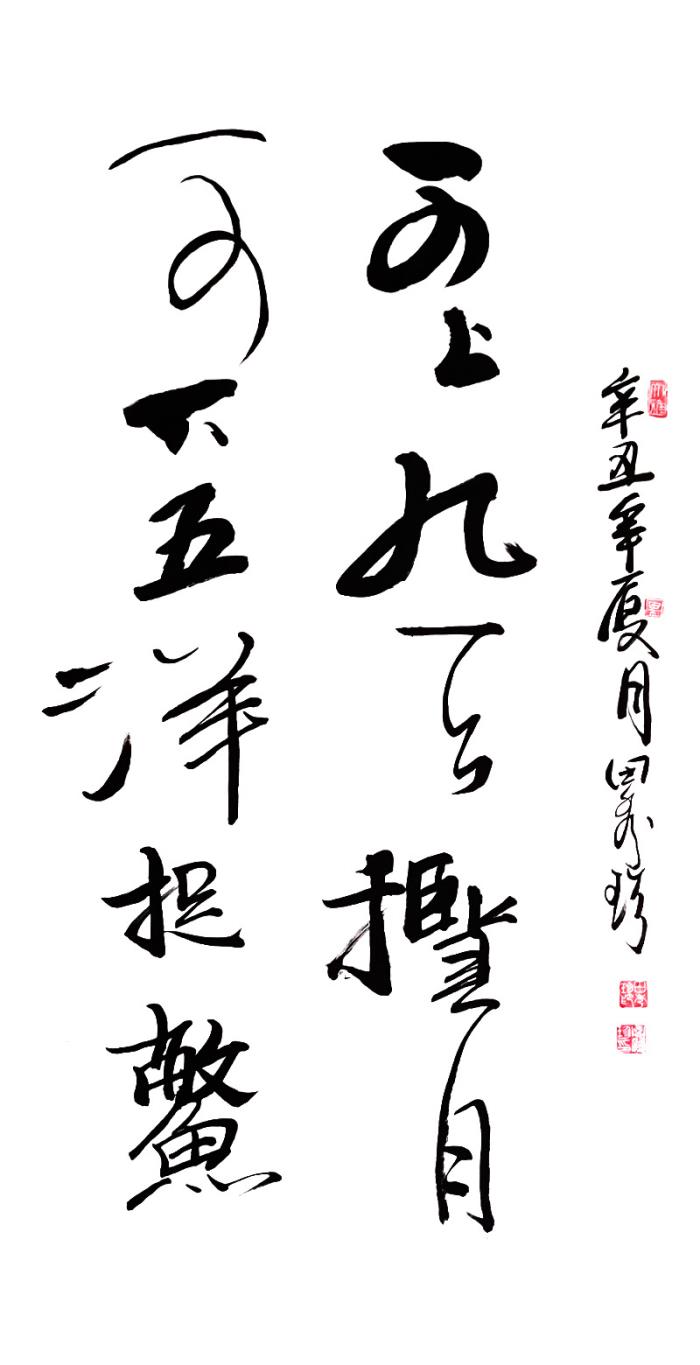 辛丑年夏月田
可上九天攬月
可下五洋捉鱉